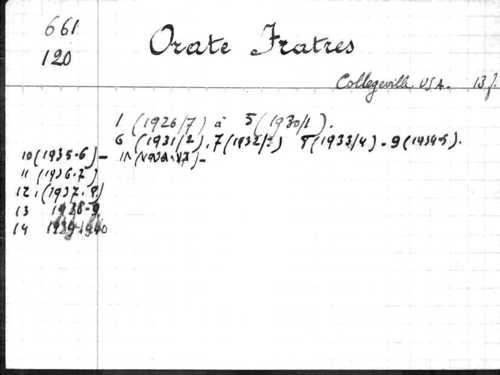 661
120
Orate Fratres
Collegeville. USA. 13 f.
1 (1926/7) à 5 (1930/1).
6 (1931/2). 7 (1932/3) 8 (1933/4) - 9 (1934-5).
10 (1935-6) –
11 (1936-7)
12. (1937-8)
13 1938-9
14 1939-1940